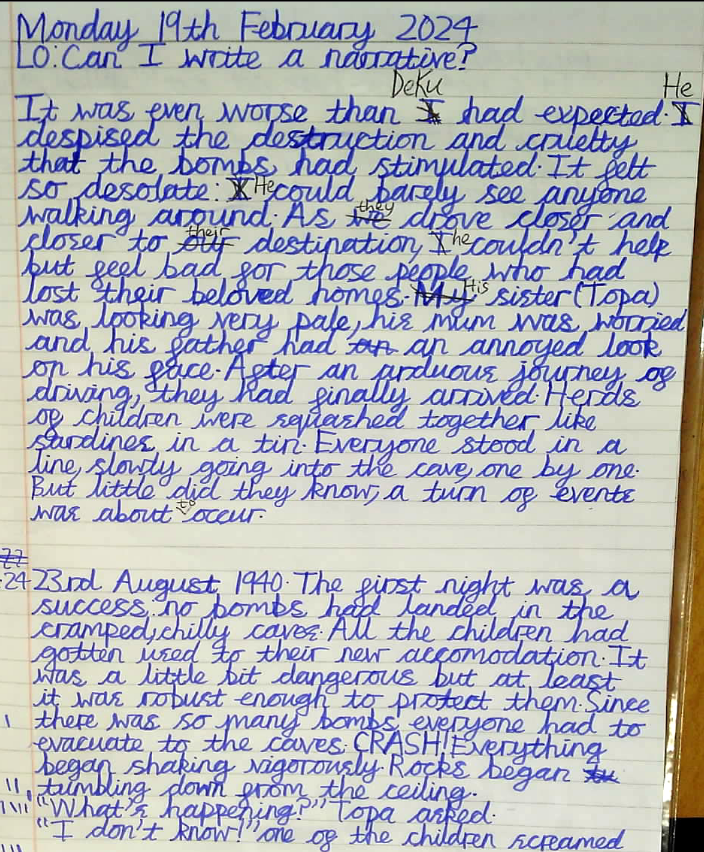 Monday 19th February 2024
LO: Can I write a narrative?
DeKu He
It was even worse than I had expected. I
despised the destruction and cruelty
that the bombs had stimulated. It felt
so desolate: I He could barely see anyone
walking around. As we they drove closer and
closer to our their destination, I he couldn't help
but feel bad for those people who had
lost their beloved homes. My His sister (Topa)
was looking very pale, his mum was worried
and his father had an an annoyed look
on his face. After an arduous journey of
driving, they had finally arrived. Herds
of children were squashed together like
sardines in a tin. Everyone stood in a
line, slowly going into the cave, one by one.
But little did they know, a turn of events
was about to occur.
22
-24 23rd August 1940. The first night was a
success: no bombs had landed in the
cramped, chilly caves. All the children had
gotten used to their new accomodation. It
was a little bit dangerous but at least
it was robust enough to protect them. Since
there was so many bombs, everyone had to
evacuate to the caves. CRASH! Everything
began shaking vigorously. Rocks began
tumbling down from the ceiling.
"What's happening?" Topa asked.
"I don't know!" one of the children screamed